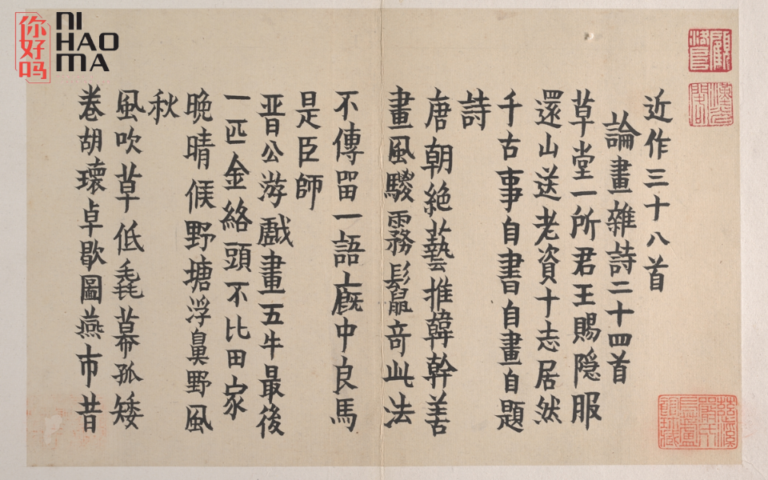 你好吗
NI
HAO
MA
近作三十八首
論畫雜詩二十四首
草堂一所君王賜隐服
還山送老資十志居然
千古事自書自畫自題
詩
唐朝絶藝推韓幹善
畫風騣霧鬛竒此法
不傳畱一語厩中良馬
是臣師
晋公游戲畫五牛最後
一匹金絡頭不比田家
晚晴候野塘浮鼻野風
秋
風吹草低毳幕孤矮
卷胡瓌卓歇圖燕市昔